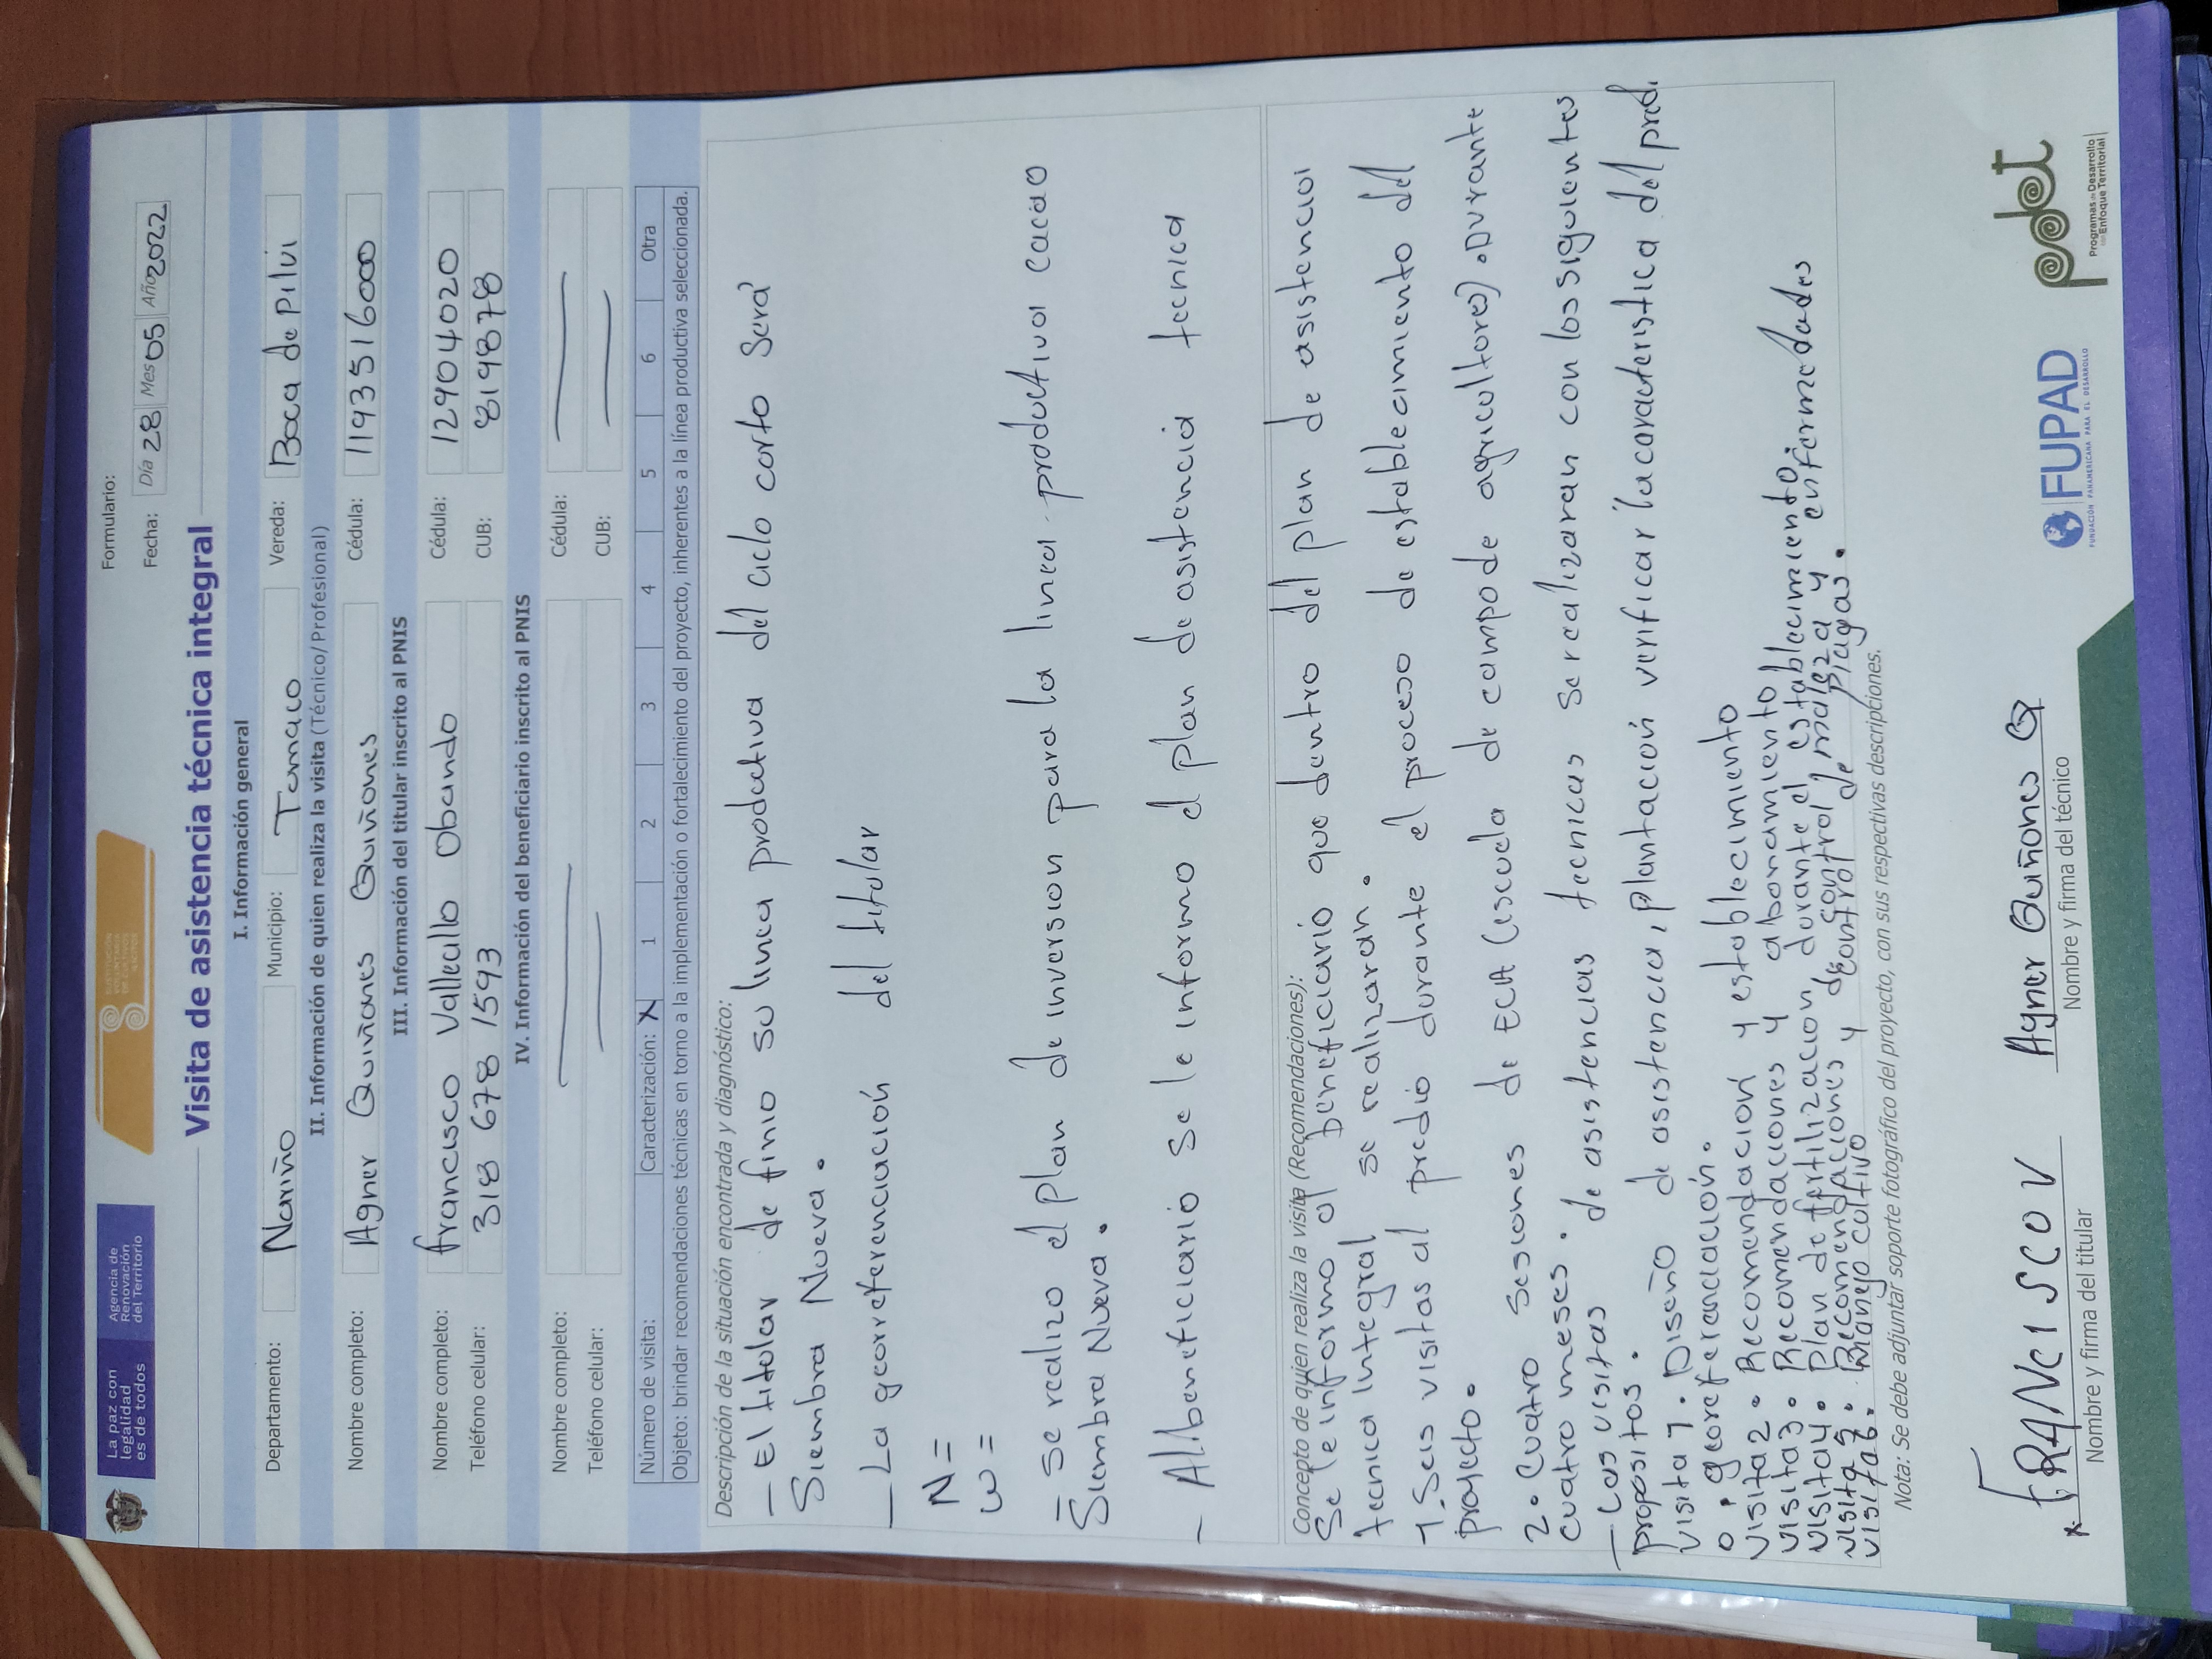 La paz con
legalidad
es de todos
Agencia de
Renovación
del Territorio
SUSTITUCIÓN
VOLUNTARIA
DE CULTIVOS
ILÍCITOS
Formulario:
Fecha: Día 28 Mes 05 Año 2022
Visita de asistencia técnica integral
I. Información general
Departamento: Nariño Municipio: Tumaco Vereda: Boca de Pilvi
II. Información de quien realiza la visita (Técnico/ Profesional)
Nombre completo: Agner Quiñones Quiñones Cédula: 1193516000
III. Información del titular inscrito al PNIS
Nombre completo: francisco Vallecillo Obando Cédula: 12904020
Teléfono celular: 318 678 1593 CUB: 819878
IV. Información del beneficiario inscrito al PNIS
Nombre completo: Cédula:
Teléfono celular: CUB:
Número de visita: Caracterización: X 1 2 3 4 5 6 Otra
Objeto: brindar recomendaciones técnicas en torno a la implementación o fortalecimiento del proyecto, inherentes a la línea productiva seleccionada.
Descripción de la situación encontrada y diagnóstico:
- El titular de finio su linea productiva del ciclo corto Será
Siembra Nueva.
- La georreferenciación del titular
N=
W=
- Se realizo el plan de inversion para la linea productiva cacao
Siembra Nueva.
- Al beneficiario se le informo el plan de asistencia tecnica
Concepto de quien realiza la visita (Recomendaciones):
Se le informo al beneficiario que dentro del plan de asistencia
tecnica integral se realizaran.
1. Seis visitas al predio durante el proceso de establecimiento del
proyecto.
2. Cuatro Sesiones de ECA (escuela de campo de agricultores). Durante
cuatro meses.
- Las visitas de asistencias tecnicas se realizaran con los siguientes
propósitos.
visita 1. Diseño de asistencia, plantación verificar la caracteristica del pred.
o. georeferenciación.
visita 2. Recomendación y establecimiento
visita 3. Recomendaciones y abonamiento
visita 4. Plan de fertilizacion durante el establecimiento
visita 5. Recomendaciones y control de maleza y enfermedades
visita 6. Manejo cultivo de control de plagas.
Nota: Se debe adjuntar soporte fotográfico del proyecto, con sus respectivas descripciones.
x FRANCISCO V
Nombre y firma del titular
Agner Quiñones Q
Nombre y firma del técnico
FUPAD
FUNDACIÓN PANAMERICANA PARA EL DESARROLLO
pdet
Programas de Desarrollo
con Enfoque Territorial